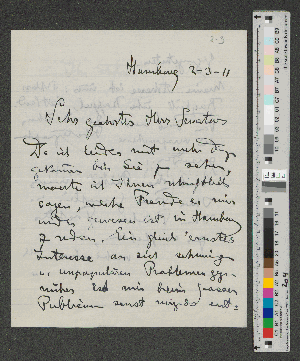 Hamburg 2-3-11
Sehr geehrter Herr Senator
Da ich leider nicht mehr dazu
gekommen bin Sie zu sehen,
möchte ich Ihnen schriftlich
sagen, welche Freude es mir
gewesen ist, in Hamburg
zu reden. Ein gleich ernstes
Interesse an sich schwierigen
u. unpopulären Problemen
habe ich mir beim grossen
Publicum sonst nirgends ent-